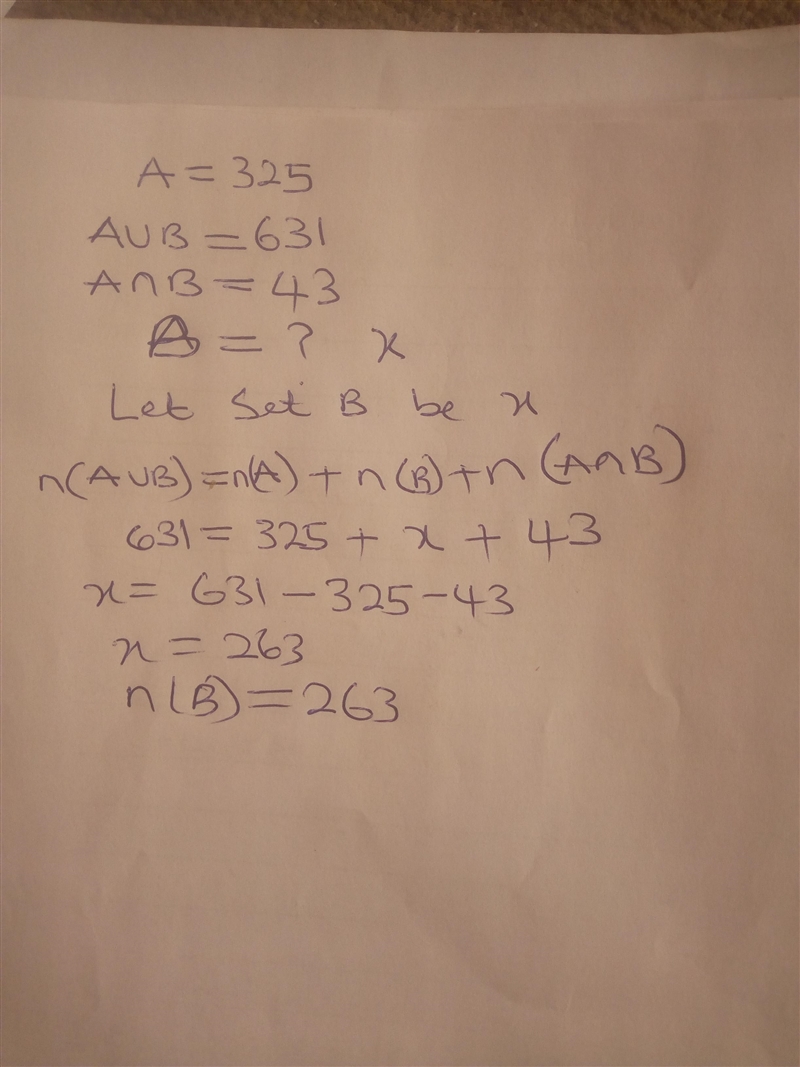 A = 325
A∪B = 631
A∩B = 43
B = ? x
Let Set B be x
n(A∪B) = n(A) + n(B) + n(A∩B)
631 = 325 + x + 43
x = 631 - 325 - 43
x = 263
n(B) = 263